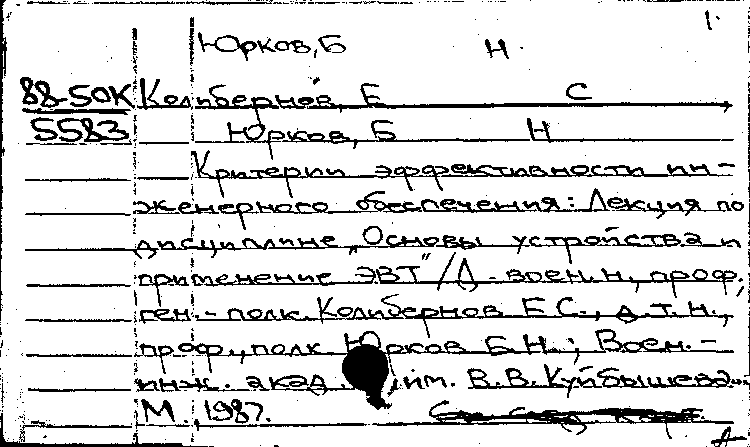 1.
Юрков, Б Н
88-50К Колибернов, Е С
5583 Юрков, Б Н
Критерии эффективности ин-
женерного обеспечения: Лекция по
дисциплине „Основы устройства и
применение ЭВТ"/Д-воен.н., проф.,
ген.-полк. Колибернов Е.С., д.т.н.,
проф., полк. Юрков Б.Н.; Воен.-
инж. акад. им. В.В. Куйбышева.-
М., 1987.